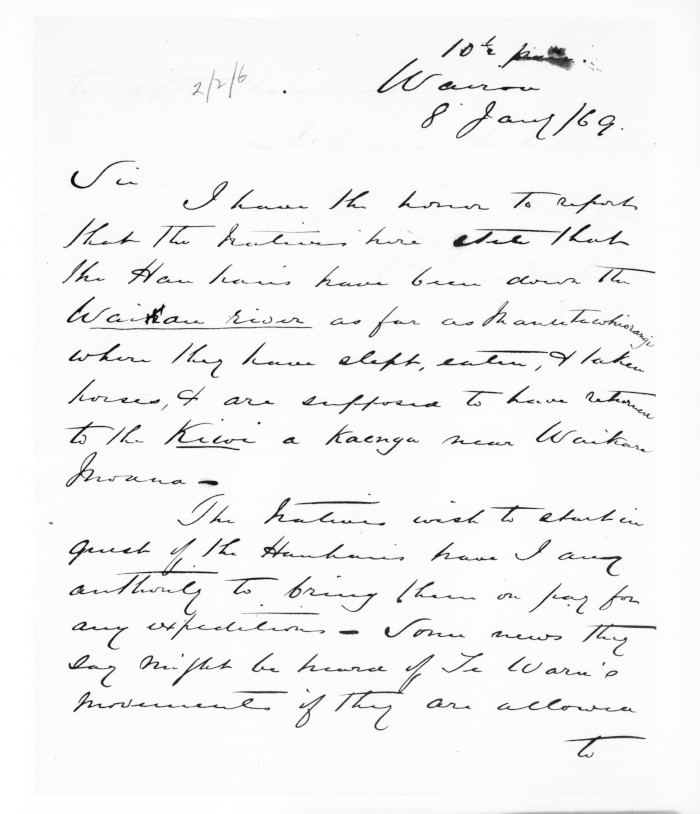 10½
2/2/6
Wairoa
8 Jany /69.
Sir
I have the honor to report
that the Natives here state that
the Hau haus have been down the
Waikau river as far as
where they have slept, eaten, & taken
horses, & are supposed to have returned
to the Kiwi a Kaenga near Waikare
Moana –
The Natives wish to start in
quest of the Hauhaus have I any
authority to bring them on pay for
any expeditions – Some news they
say might be heard of Te Waru's
movements if they are allowed
to